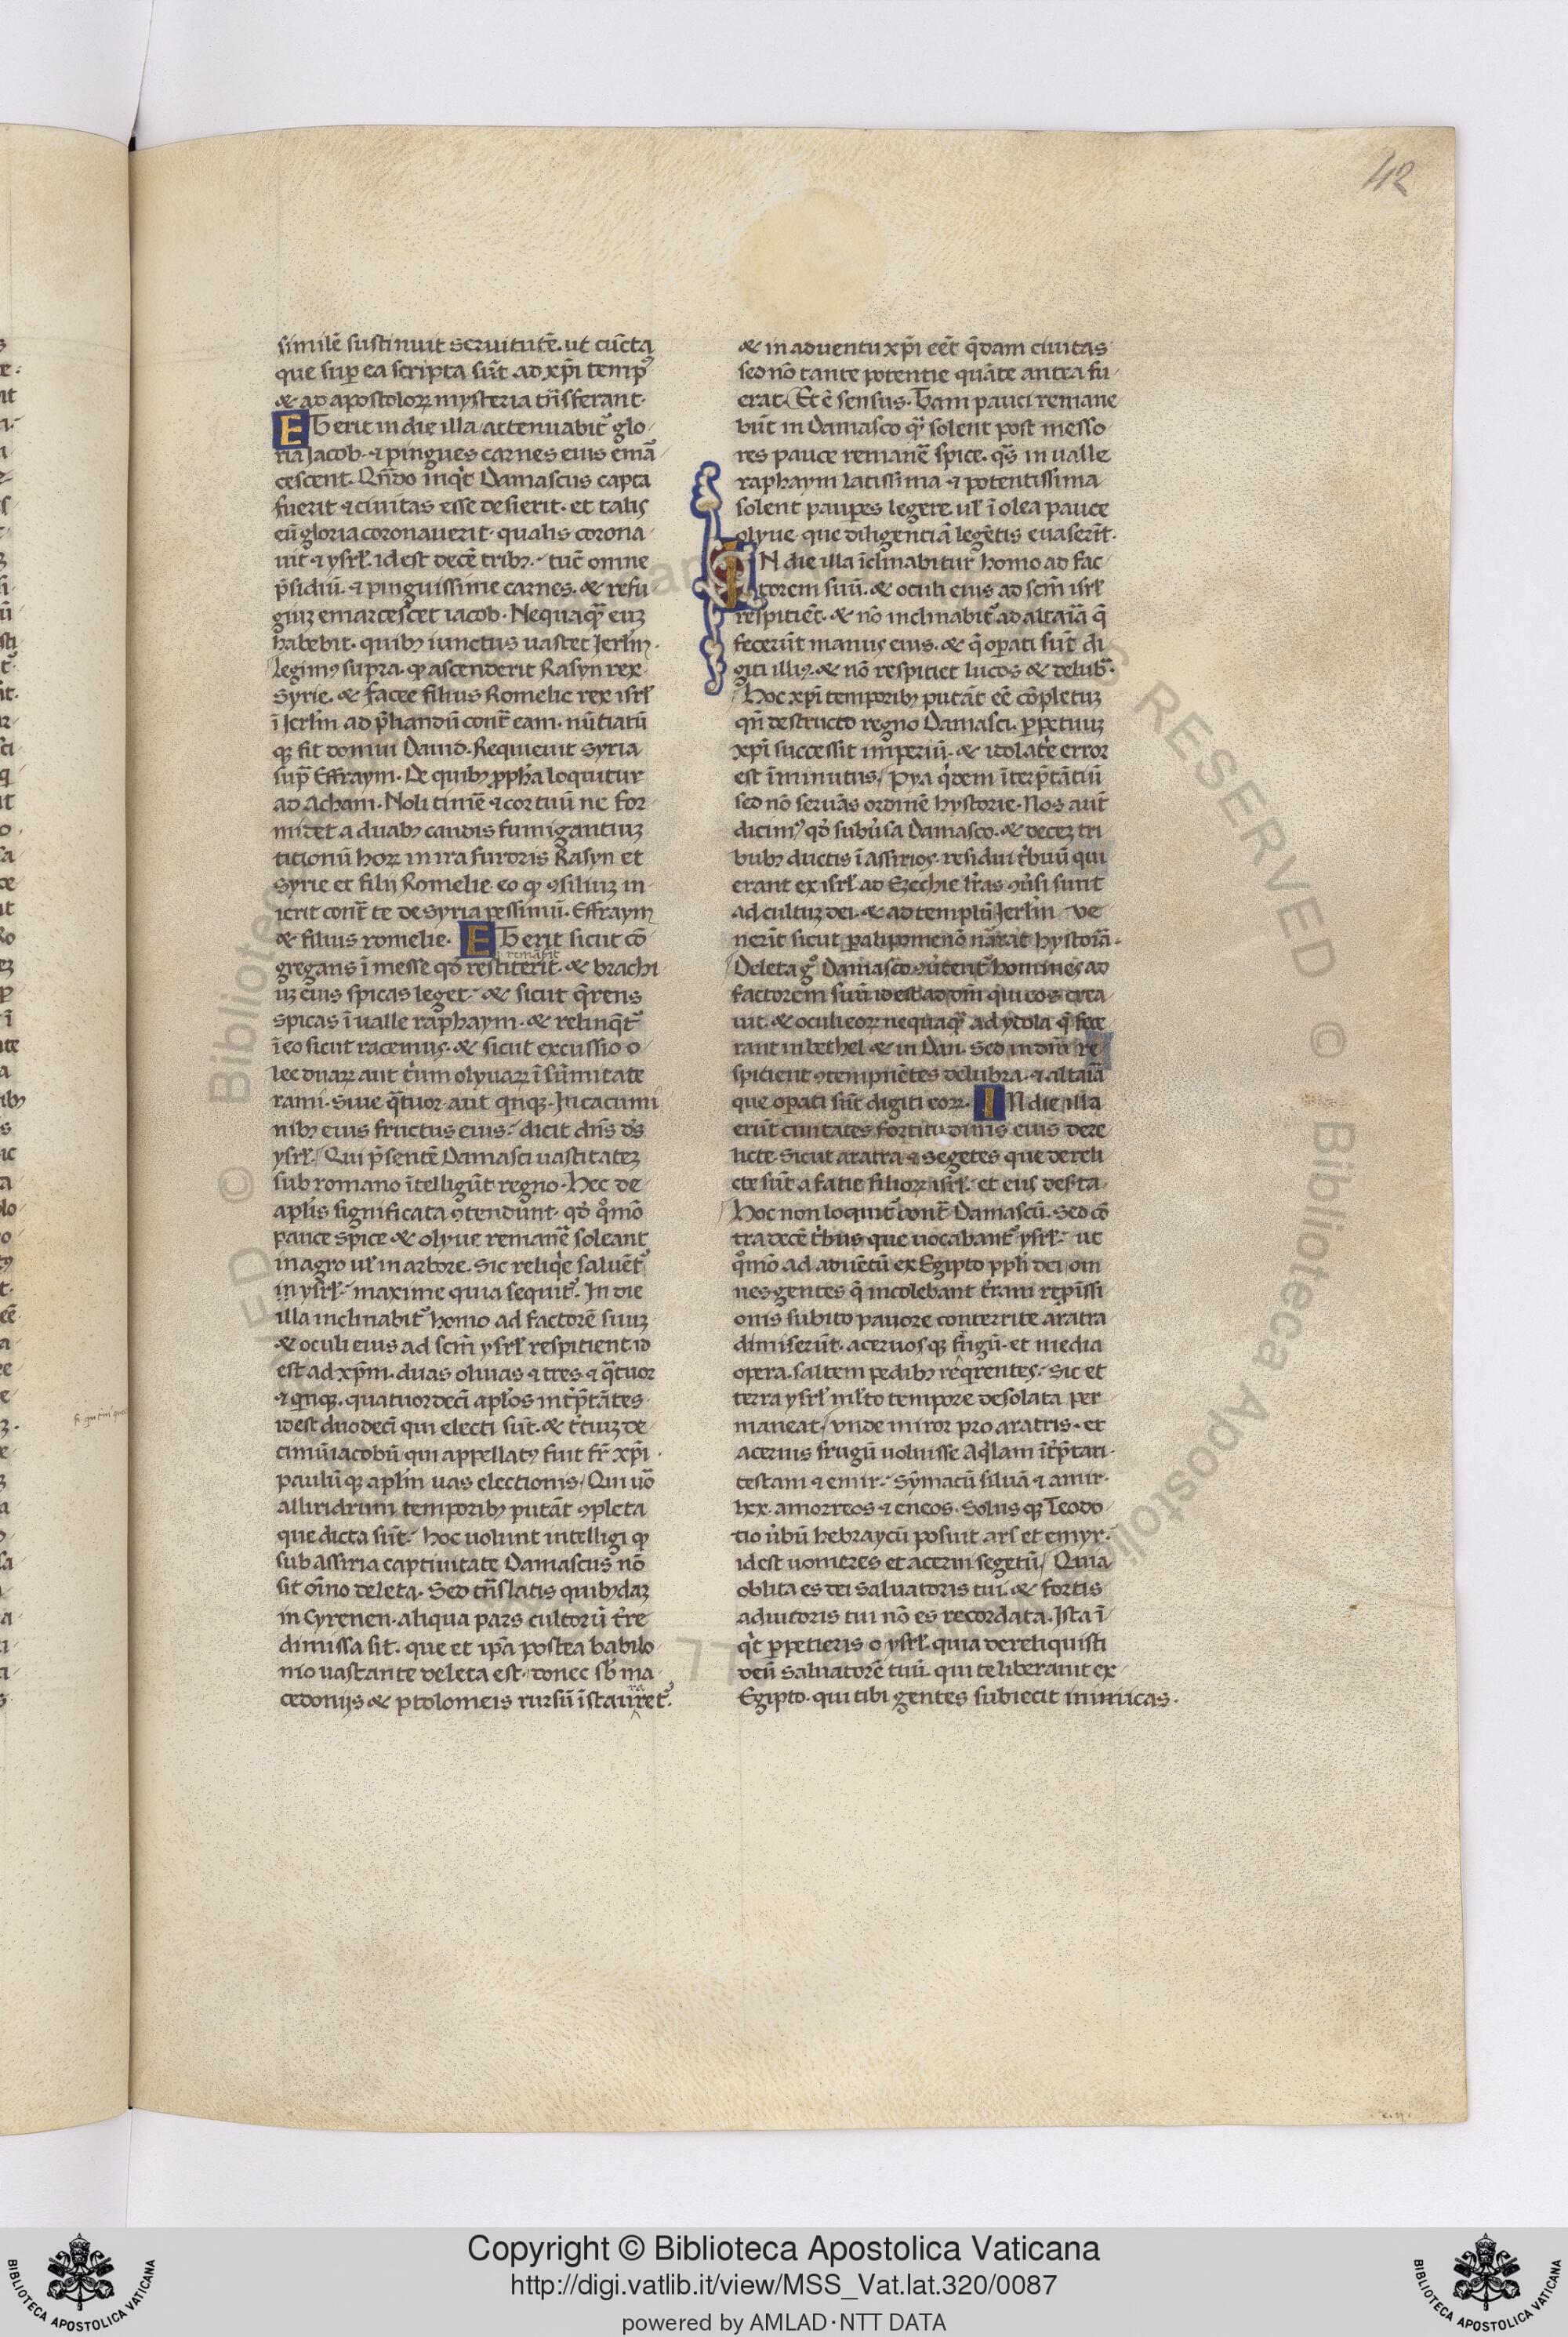 42
similē sustinuit seruitutē. ut cūcta
que suꝑ ea scripta sūt. ad xp̄i tempꝰ
& ad apostolorꝝ mysteria tn̄sferant.
ET erit in die illa attenuabit᷑ glo
ria Jacob. ⁊ pingues carnes eius emā
cescent. Qn̄do inq̇t Damascus capta
fuerit ⁊ ciuitas esse desierit. et talis
eū gloria coronauerit. qualis corona
uit ⁊ ysrl̄. id est decē tribꝫ. tūc omne
p̄sidiū. ⁊ pinguissime carnes. & refu
giuꝫ emarcescet iacob. Nequaq̄ꝫ euꝫ
habebit. quibꝫ iunctus uastet Jerl̄m.
Legimꝰ supra. ꝙ ascenderit Rasyn rex
Syrie. & facee filius Romelie rex isrl̄
ī Jerl̄m ad p̄liandū cont̄ eam. nūtiatū
qꝫ sit domui Dauid. Requieuit syria
sup̄ Effraym. De quibꝫ ꝓpħa loquitur
ad Acham. Noli timē ⁊ cor tuū ne for
midet a duabꝫ caudis fumigantiuꝫ
titionū horꝝ in ira furoris Rasyn et
Syrie et filij Romelie. eo ꝙ ꝯsiliuꝫ in
ierit cont̄ te de syria pessimū. Effraym
& filius romelie. ET erit sicut cō
remāsit
gregans ī messe qd̄ restiterit. & brachi
uꝫ eius spicas leget. & sicut q̄rens
spicas ī ualle raphaym. & relinq̄t᷑
ī eo sicut racemus. & sicut excussio o
lee duarꝝ aut t̓ium olyuarꝝ ī sūmitate
rami. siue q̄tuor aut qnqꝫ. In cacumi
nibꝫ eius fructus eius. dicit dn̄s ds̄
ysrl̄. Qui p̄sentē Damasci uastitateꝫ
sub romano ītelligūt regno. Hec de
apl̄is significata ꝯtendunt. qd̄ q̊mō
pauce spice & olyue remanē soleant
in agro ul̄ in arbore. Sic reliq̇e saluēt᷑
in ysrl̄. maxime quia sequit᷑. In die
illa inclinabit᷑ homo ad factorē suuꝫ
& oculi eius ad scm̄ ysrl̄ respitient. id
est ad xp̄m. duas oliuas ⁊ tres. ⁊ q̄tuor
⁊ qnqꝫ. quatuordecī apl̄os int̓p̄tātes
id est duodecī qui electi sūt. & t̓tiuꝫ de
cimū iacobū qui appellatꝰ fuit fr̄ xp̄i.
paulūqꝫ apl̄m uas electionis. Qui uō
alliridrum temporibꝫ putāt ꝯpleta
que dicta sūt. hoc uolunt intelligi ꝙ
sub assiria captiuitate Damascus nō
sit oīno deleta. Sed tn̄slatis quibꝫdaꝫ
in Cyrenen. aliqua pars cultorū t̄re
dimissa sit. que et ip̄a postea babilo
nio uastante deleta est. donec sb̄ ma
ra
cedonijs & ptolomeis rursū īstauret᷑.
& in aduentu xp̄i eēt q̄dam ciuitas
sed nō tante potentie quāte antea fu
erat. Et ē sensus. Tam pauci remane
būt in Damasco q̄ꝫ solent post messo
res pauce remanē spice. qs̄ in ualle
raphaym latissima ⁊ potentissima
solent pauꝑes legere. ul̄ ī olea pauce
olyue. que diligentiā legētis euaserīt.
IN die illa īclinabitur homo ad fac
torem suū. & oculi eius ad scm̄ isrl̄
respitiēt. & nō inclinabit᷑ ad altaīa q̄
fecerūt manus eius. & q̄ oꝑati sūt di
giti illiꝰ. & nō respitiet lucos & delubᷓ.
Hoc xp̄i temporibꝫ putāt eē cōpletuꝫ
qn̄ destructo regno Damasci. ꝑpetuuꝫ
xp̄i successit imperiū. & idolat̓e error
est īminutus. Pya q̇dem īterp̄tātiū
sed nō seruās ordinē hystorie. Nos aut̄
dicimꝰ qd̄ subu̓sa Damasco. & deceꝫ tri
bubꝫ ductis ī assirios. residui t̓buū qui
erant ex isrl̄ ad Ezechie lr̄as ꝯu̓si sunt
ad cultuꝫ dei. & ad templū Jerl̄m. ue
nerīt sicut ꝑalipomenō nārat hystoīa.
Deleta gͦ Damasco ꝯu̓tent᷑ homines ad
factorem suū id est ad dm̄ qui eos crea
uit. & oculi eorꝝ nequaq̄ꝫ ad ydola q̄ fece
rant in bethel & in Dan. Sed in dm̄ re
spicient ꝯtempnētes delubra. ⁊ altaīa
que oꝑati sūt digiti eorꝝ. IN die illa
erūt ciuitates fortitudinis eius dere
licte. Sicut aratra ⁊ segetes que dereli
cte sūt a facie filiorꝝ isrl̄. et eris deserta.
Hoc non loquit᷑ cont̄ Damascū. Sed cō
tra decē t̓bus que uocabant᷑ ysrl̄. ut
q̊mō ad aduētū ex Egipto ppl̄i dei om
nes gentes q̄ incolebant t̓ram rep̄issi
onis subito pauore conterrite aratra
dimiserūt. aceruosqꝫ frugū. et media
opera. saltem pedibꝫ reqrentes. Sic et
terra ysrl̄ ml̄to tempore desolata per
maneat. vnde miror pro aratris. et
aceruis frugū uoluisse Aq̇lam īt̓p̄tari.
testam ⁊ emir. Symacū siluā ⁊ amir.
lxx. amorreos ⁊ eueos. Solus qꝫ Teodo
tio u̓bū hebraycū posuit ars et emyr.
id est uomeres et acerui segetū. Quia
oblita es dei saluatoris tui. & fortis
adiutoris tui nō es recordata. Ista ī
q̇t ꝑpetieris o ysrl̄. quia dereliquisti
deū saluatorē tuū. qui te liberauit ex
Egipto. qui tibi gentes subiecit inimicas.
Copyright © Biblioteca Apostolica Vaticana
http://digi.vatlib.it/view/MSS_Vat.lat.320/0087
powered by AMLAD·NTT DATA